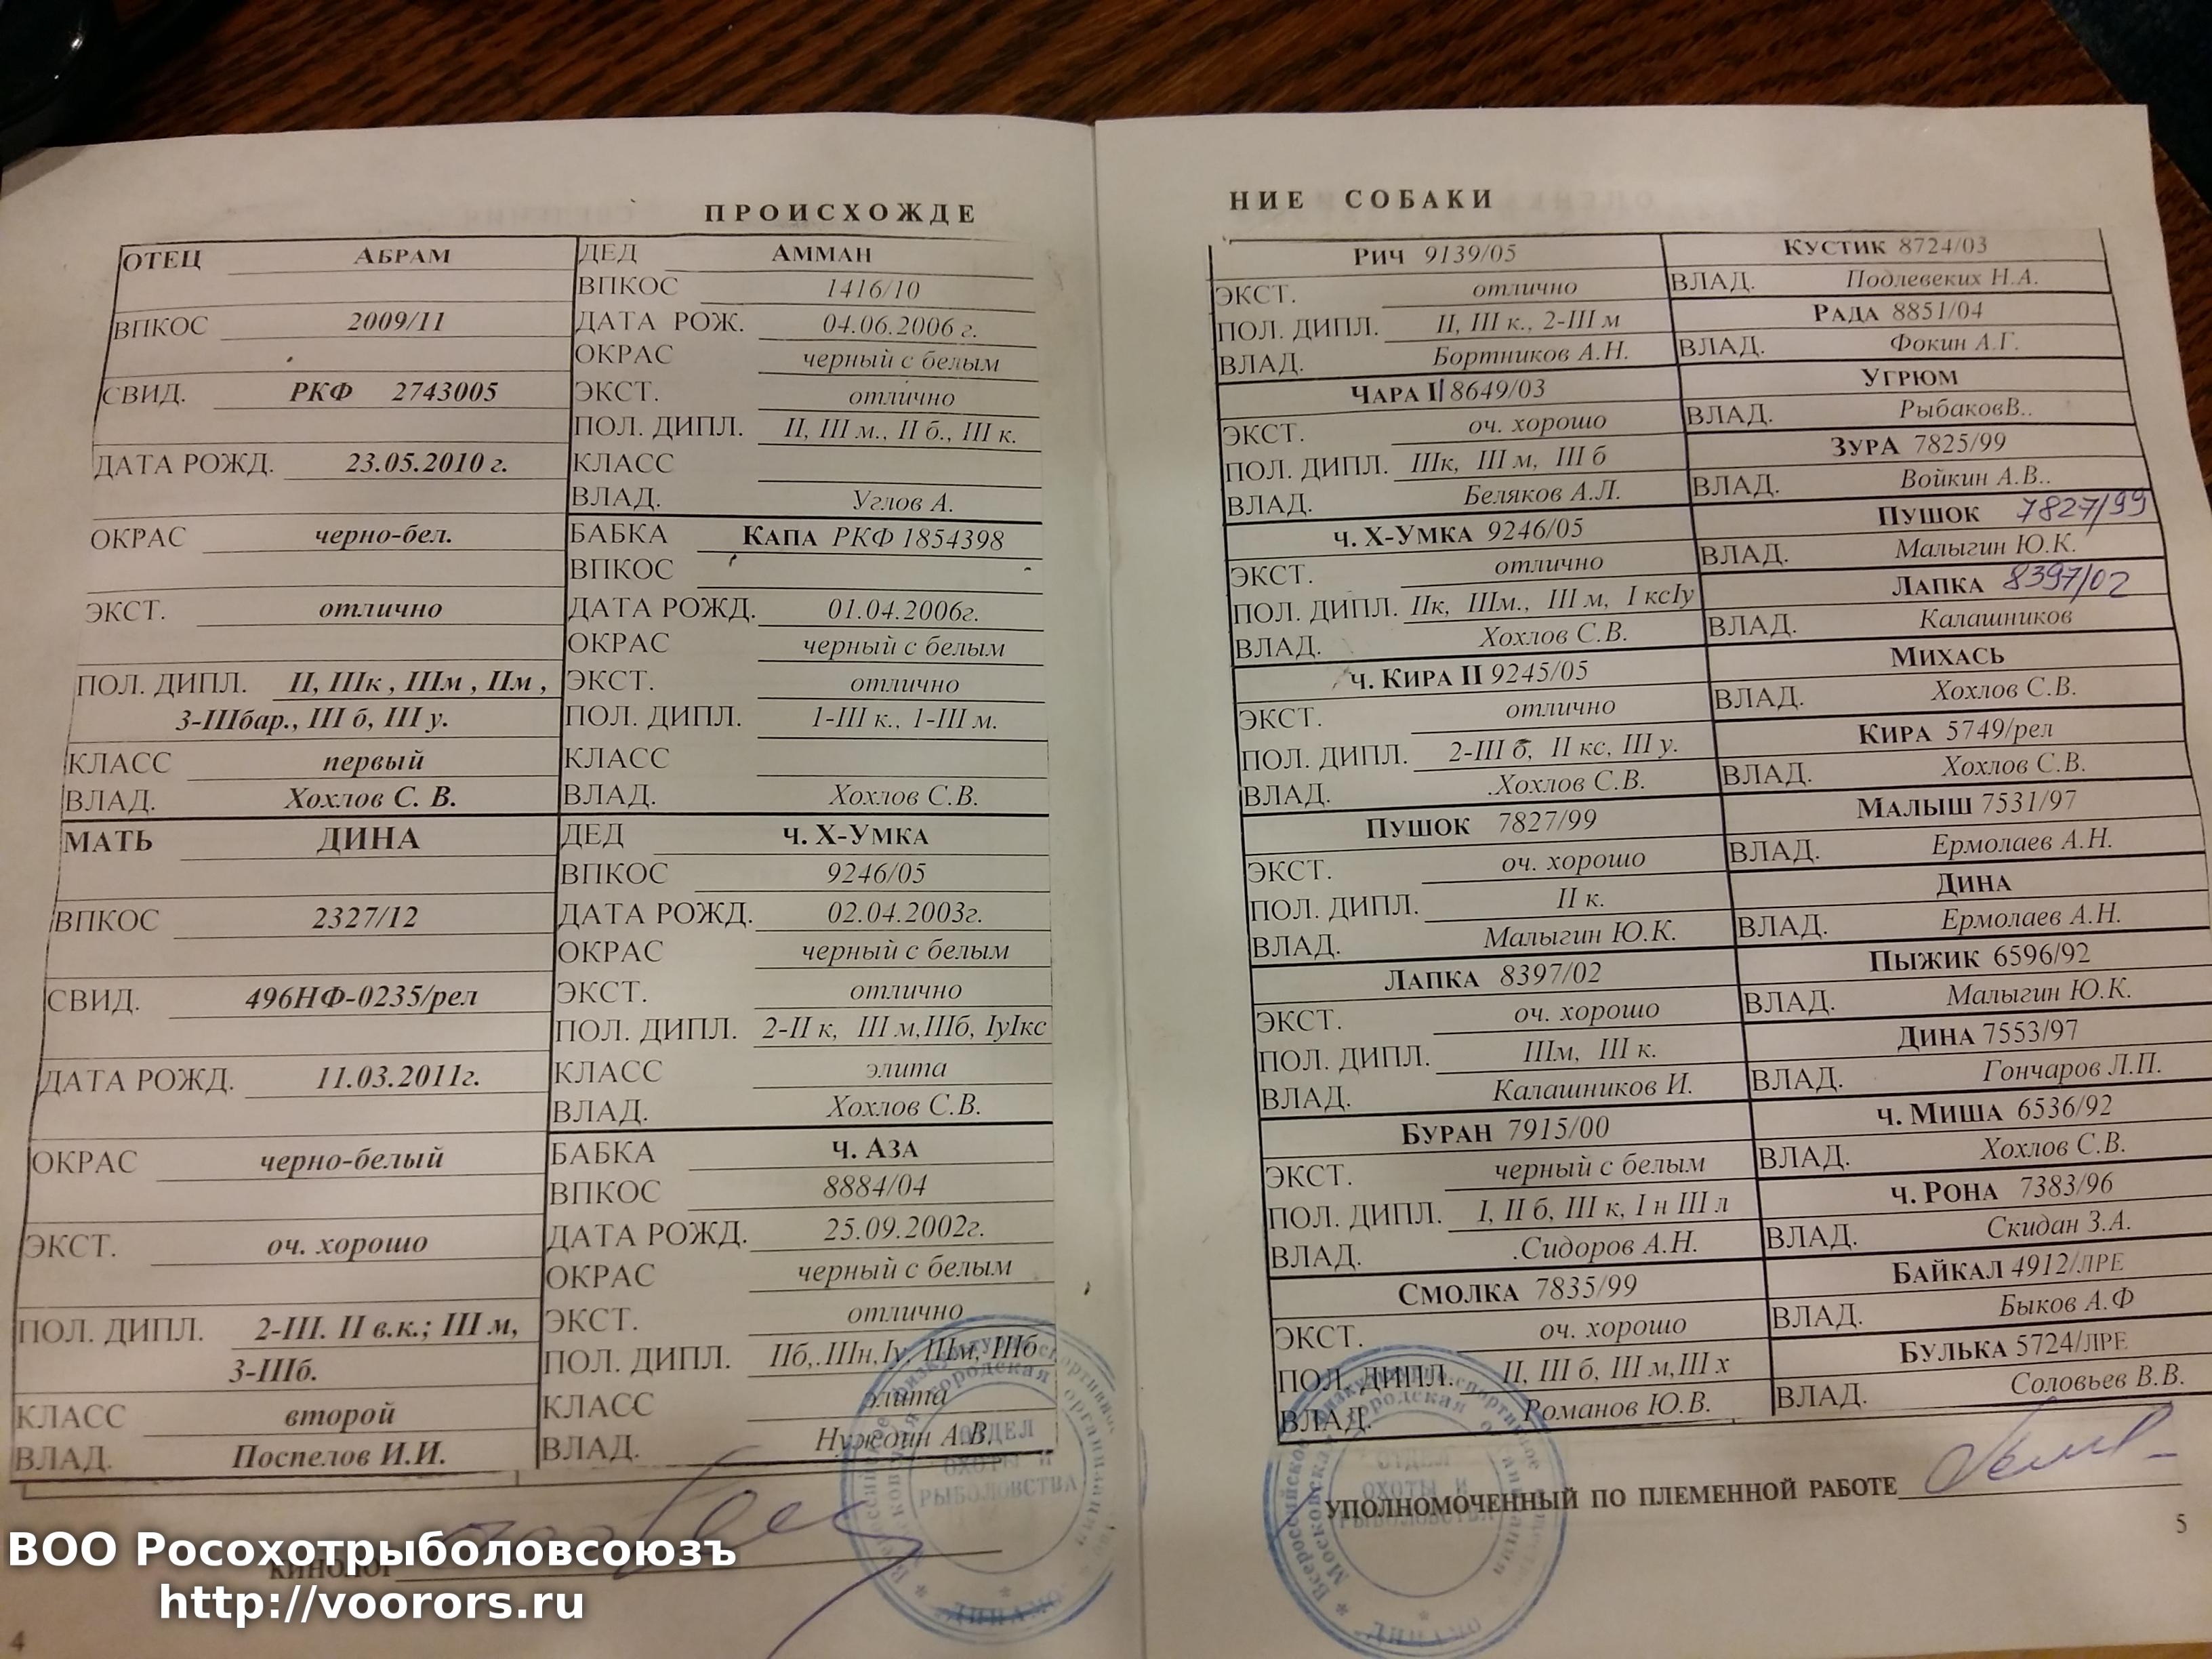 ПРОИСХОЖДЕ
ОТЕЦ АБРАМ
ВПКОС 2009/11
СВИД. РКФ 2743005
ДАТА РОЖД. 23.05.2010 г.
ОКРАС черно-бел.
ЭКСТ. отлично
ПОЛ. ДИПЛ. II, IIIк , IIIм , IIм ,
3-IIIбар., III б, III у.
КЛАСС первый
ВЛАД. Хохлов С. В.
МАТЬ ДИНА
ВПКОС 2327/12
СВИД. 496НФ-0235/рел
ДАТА РОЖД. 11.03.2011г.
ОКРАС черно-белый
ЭКСТ. оч. хорошо
ПОЛ. ДИПЛ. 2-III. II в.к.; III м,
3-IIIб.
КЛАСС второй
ВЛАД. Поспелов И.И.
ДЕД АММАН
ВПКОС 1416/10
ДАТА РОЖ. 04.06.2006 г.
ОКРАС черный с белым
ЭКСТ. отлично
ПОЛ. ДИПЛ. II, III м., II б., III к.
КЛАСС
ВЛАД. Углов А.
БАБКА КАПА РКФ 1854398
ВПКОС
ДАТА РОЖД. 01.04.2006г.
ОКРАС черный с белым
ЭКСТ. отлично
ПОЛ. ДИПЛ. 1-III к., 1-III м.
КЛАСС
ВЛАД. Хохлов С.В.
ДЕД ч. Х-УМКА
ВПКОС 9246/05
ДАТА РОЖД. 02.04.2003г.
ОКРАС черный с белым
ЭКСТ. отлично
ПОЛ. ДИПЛ. 2-II к, III м,IIIб, IуIкс
КЛАСС элита
ВЛАД. Хохлов С.В.
БАБКА ч. АЗА
ВПКОС 8884/04
ДАТА РОЖД. 25.09.2002г.
ОКРАС черный с белым
ЭКСТ. отлично
ПОЛ. ДИПЛ. IIб,.IIIн,Iу, IIIм, IIIб
КЛАСС элита
ВЛАД. Нуждин А.В.
ОТДЕЛ
ОХОТЫ И
РЫБОЛОВСТВА
ДИНАМО
КИНОЛОГ
4
НИЕ СОБАКИ
РИЧ 9139/05
ЭКСТ. отлично
ПОЛ. ДИПЛ. II, III к., 2-III м
ВЛАД. Бортников А.Н.
ЧАРА II 8649/03
ЭКСТ. оч. хорошо
ПОЛ. ДИПЛ. IIIк, III м, III б
ВЛАД. Беляков А.Л.
ч. Х-УМКА 9246/05
ЭКСТ. отлично
ПОЛ. ДИПЛ. IIк, IIIм., III м, I ксIу
ВЛАД. Хохлов С.В.
ч. КИРА II 9245/05
ЭКСТ. отлично
ПОЛ. ДИПЛ. 2-III б, II кс, III у.
ВЛАД. .Хохлов С.В.
ПУШОК 7827/99
ЭКСТ. оч. хорошо
ПОЛ. ДИПЛ. II к.
ВЛАД. Малыгин Ю.К.
ЛАПКА 8397/02
ЭКСТ. оч. хорошо
ПОЛ. ДИПЛ. IIIм, III к.
ВЛАД. Калашников И.
БУРАН 7915/00
ЭКСТ. черный с белым
ПОЛ. ДИПЛ. I, II б, III к, I н III л
ВЛАД. .Сидоров А.Н.
СМОЛКА 7835/99
ЭКСТ. оч. хорошо
ПОЛ. ДИПЛ. II, III б, III м,III х
ВЛАД. Романов Ю.В.
КУСТИК 8724/03
ВЛАД. Подлевских Н.А.
РАДА 8851/04
ВЛАД. Фокин А.Г.
УГРЮМ
ВЛАД. РыбаковВ..
ЗУРА 7825/99
ВЛАД. Войкин А.В..
ПУШОК 7827/99
ВЛАД. Малыгин Ю.К.
ЛАПКА 8397/02
ВЛАД. Калашников
МИХАСЬ
ВЛАД. Хохлов С.В.
КИРА 5749/рел
ВЛАД. Хохлов С.В.
МАЛЫШ 7531/97
ВЛАД. Ермолаев А.Н.
ДИНА
ВЛАД. Ермолаев А.Н.
ПЫЖИК 6596/92
ВЛАД. Малыгин Ю.К.
ДИНА 7553/97
ВЛАД. Гончаров Л.П.
ч. МИША 6536/92
ВЛАД. Хохлов С.В.
ч. РОНА 7383/96
ВЛАД. Скидан З.А.
БАЙКАЛ 4912/ЛРЕ
ВЛАД. Быков А.Ф
БУЛЬКА 5724/ЛРЕ
ВЛАД. Соловьев В.В.
ОТДЕЛ
ОХОТЫ И
РЫБОЛОВСТВА
ДИНАМО
УПОЛНОМОЧЕННЫЙ ПО ПЛЕМЕННОЙ РАБОТЕ
5
ВОО Росохотрыболовсоюзъ
http://voorors.ru